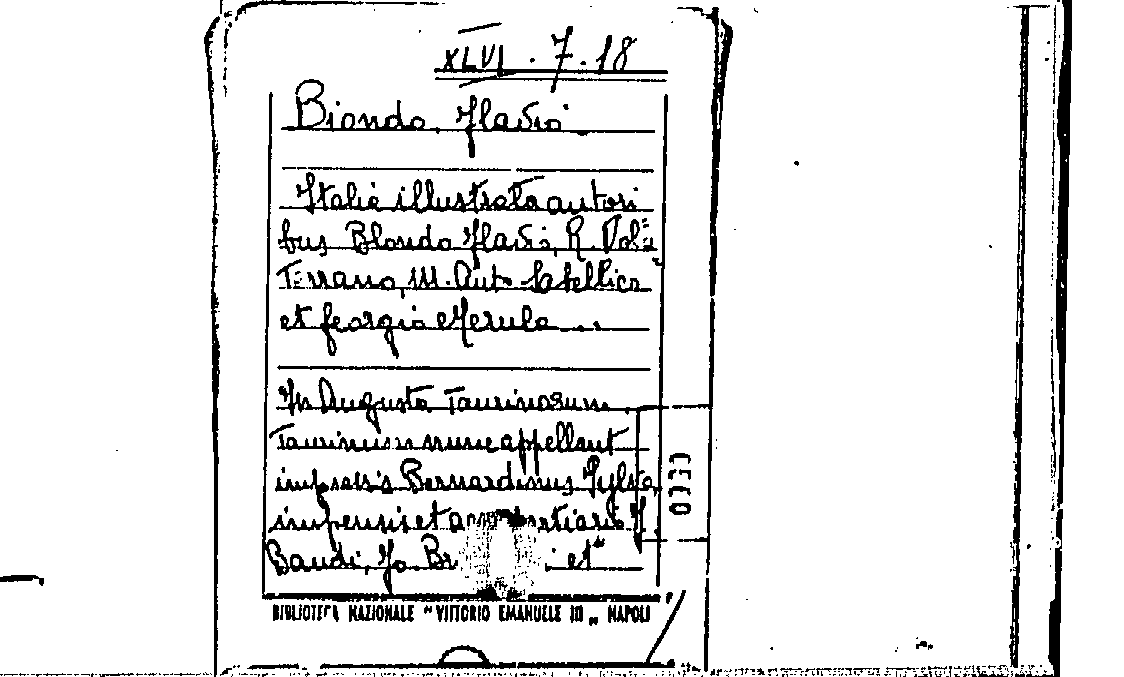 XLVI. 7. 18
Biondo, Flavio.
Italia illustrata autori
bus Blondo Flavio, R. Vola
Terrano, M. Ant. Sabellico
et Georgio Merula ...
In Augusta Taurinorum
Taurinum nunc appellant
impressis Bernardinus Sylva,
impensis et J.
Baudi, Jo. et
BIBLIOTECA NAZIONALE "VITTORIO EMANUELE III„ NAPOLI